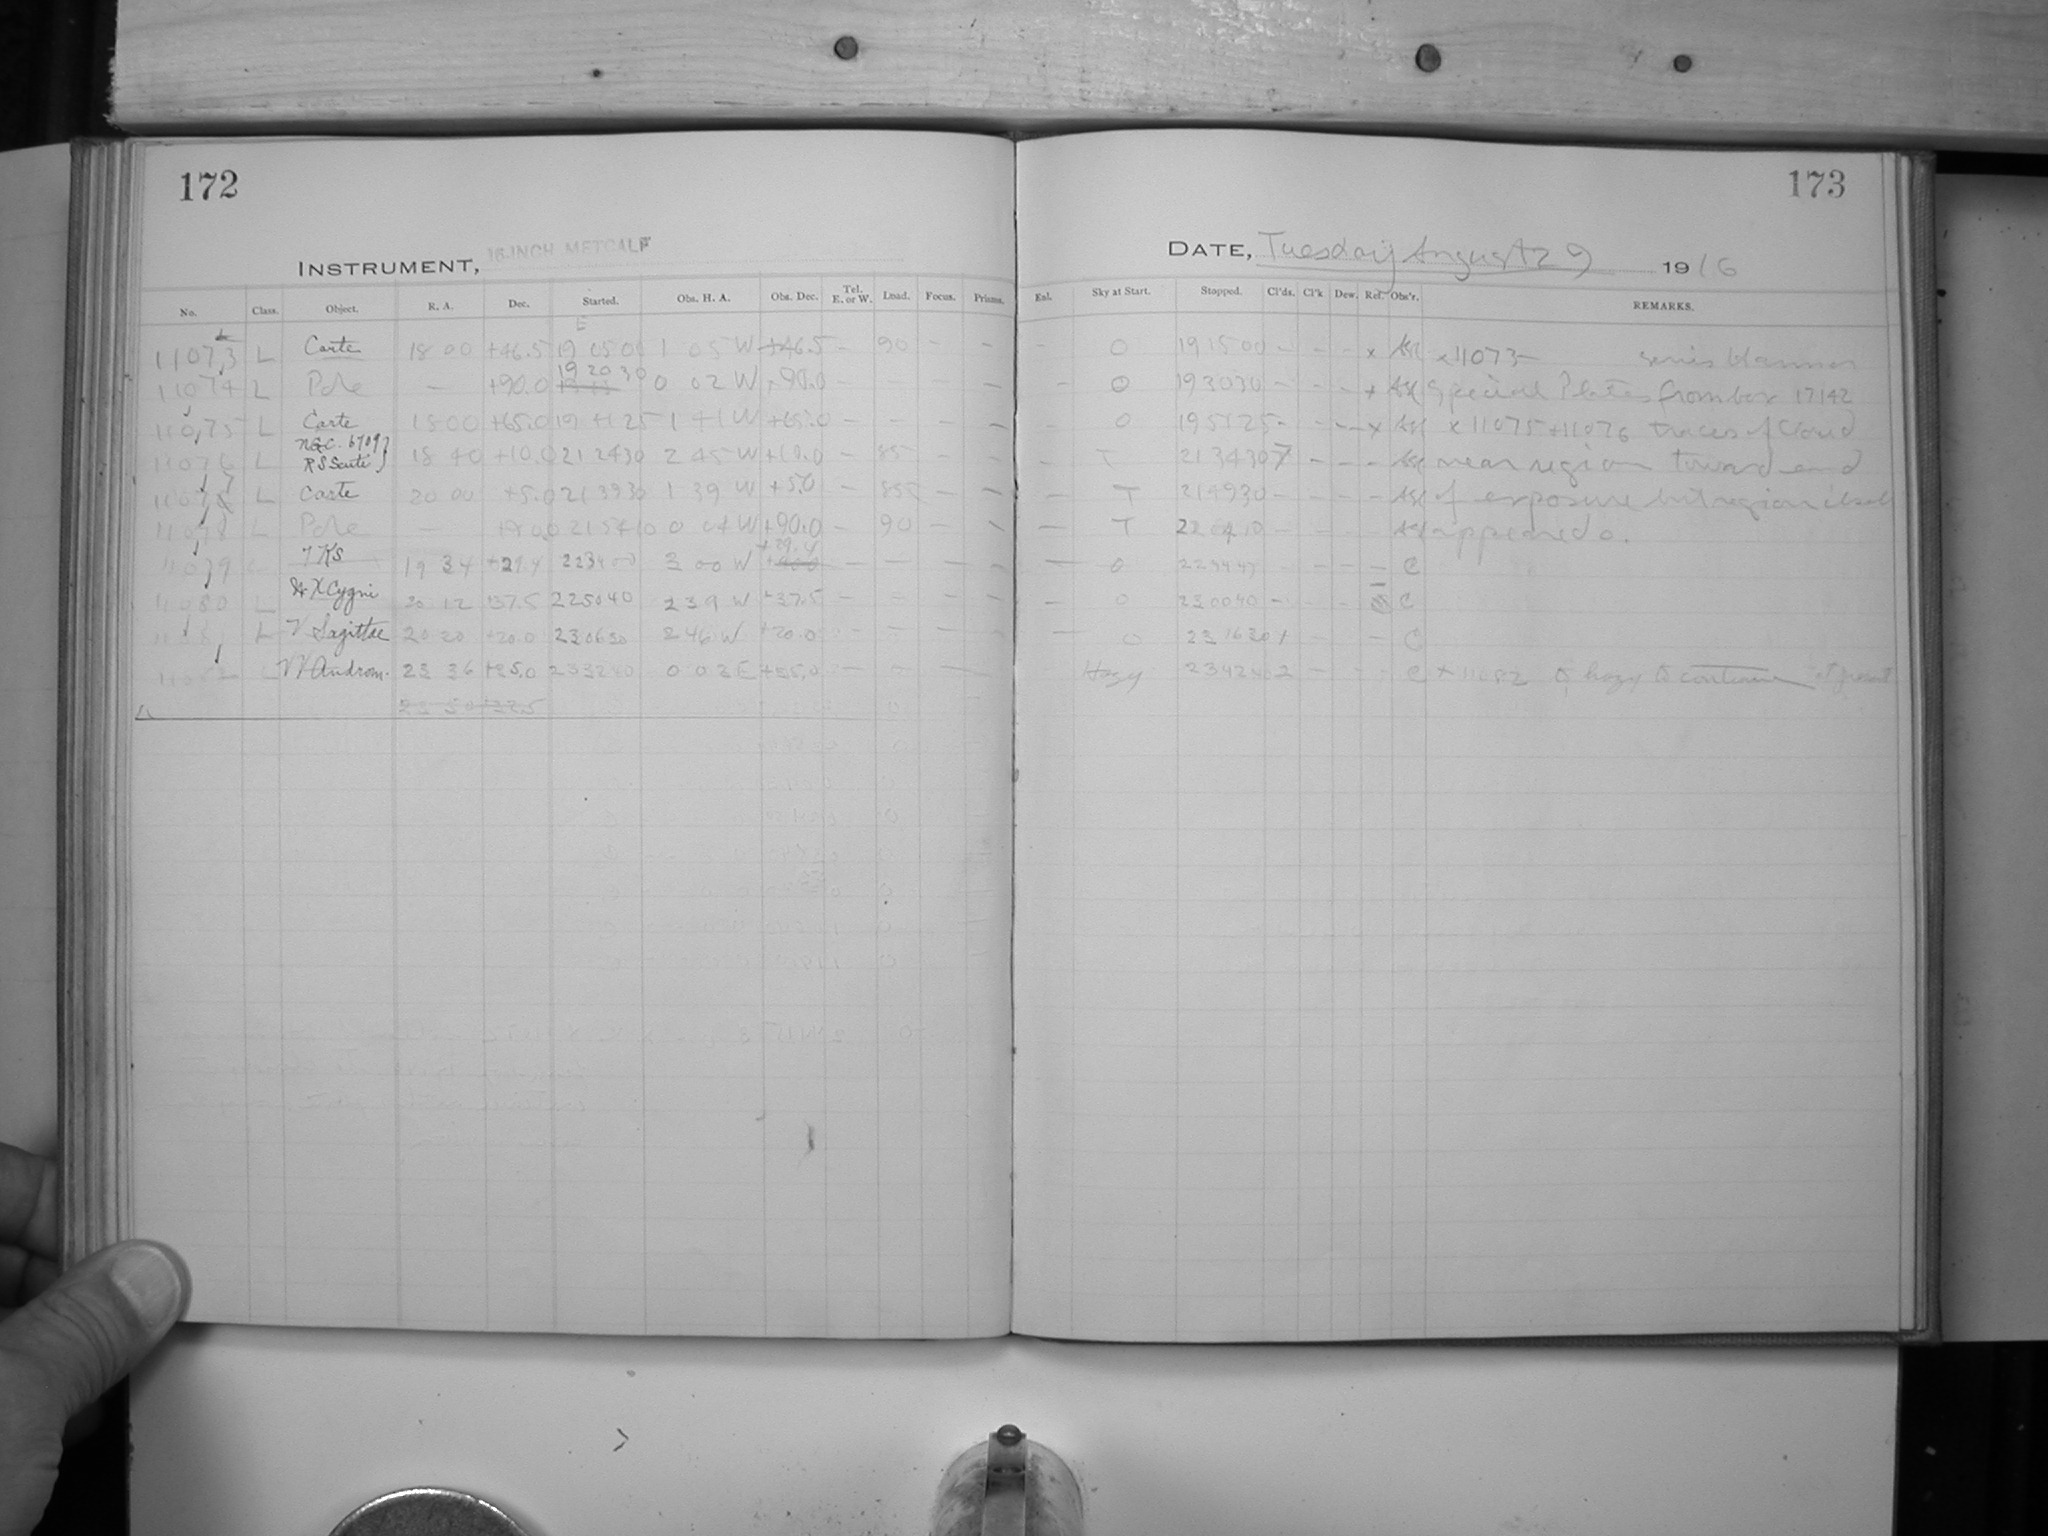 172
173
INSTRUMENT, 16-INCH METCALF
DATE, Tuesday August 29 1916
No. Class. Object. R. A. Dec. Started. Obs. H. A. Obs. Dec. Tel. E. or W. Load. Focus. Prisms.
Eal. Sky at Start. Stopped. Cl'ds. Cl'k Dew. Ref. Obs'r. REMARKS.
11073 L Carte 18 00 +46.5 19 05 00 1 05 W +46.5 - 90 - -
O 19 15 00 - - - x x 11073 -
11074 L Pole - +90.0 19 20 30 0 02 W +90.0 - - - -
- O 19 30 30 - - - x Special Plates from box 17142
11075 L Carte 18 00 +65.0 19 41 25 1 41 W +65.0 - - - -
O 19 51 25 - - - x x 11075 + 11076 traces of Cloud
11076 L N.G.C. 6709 } R S Scuti } 18 40 +10.0 21 24 30 2 45 W +10.0 - 85 - -
- T 21 34 30 7 - - - near region toward end
L Carte 20 00 +5.0 21 39 30 1 39 W +5.0 - 85 - -
- T 21 49 30 - - - - of exposure but region itself
11078 L Pole - +90.0 21 54 10 0 04 W +90.0 - 90 - -
- T 22 04 10 - - - appeared o.
11079 19 34 +29.4 22 34 00 3 00 W +29.4 - - - -
- O - - - - C
11080 L X Cygni 20 12 +37.5 22 50 40 2 39 W +37.5 - - - -
- O 23 00 40 - - - C
L V Sagittae 20 20 +20.0 23 06 30 2 46 W +20.0 - - - -
- O 23 16 30 1 - - - C
11082 L Androm. 23 36 +35.0 23 32 40 0 03 E +35.0 - - - -
Hazy 23 42 40 2 - - - C x 11082 hazy to continue at present
23 50 +32.5